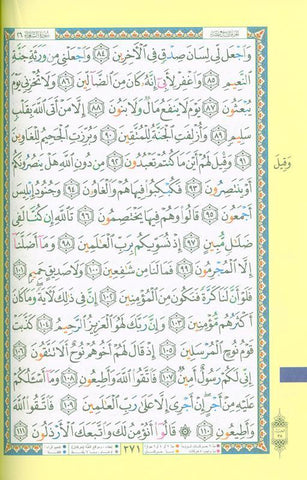 الجزء التاسع عشر سورة الشعراء ٢٦
وَٱجْعَل لِّى لِسَانَ صِدْقٍ فِى ٱلْءَاخِرِينَ ٨٤ وَٱجْعَلْنِى مِن وَرَثَةِ جَنَّةِ
ٱلنَّعِيمِ ٨٥ وَٱغْفِرْ لِأَبِىٓ إِنَّهُۥ كَانَ مِنَ ٱلضَّآلِّينَ ٨٦ وَلَا تُخْزِنِى يَوْمَ
يُبْعَثُونَ ٨٧ يَوْمَ لَا يَنفَعُ مَالٌ وَلَا بَنُونَ ٨٨ إِلَّا مَنْ أَتَى ٱللَّهَ بِقَلْبٍ
سَلِيمٍ ٨٩ وَأُزْلِفَتِ ٱلْجَنَّةُ لِلْمُتَّقِينَ ٩٠ وَبُرِّزَتِ ٱلْجَحِيمُ لِلْغَاوِينَ
٩١ وَقِيلَ لَهُمْ أَيْنَ مَا كُنتُمْ تَعْبُدُونَ ٩٢ مِن دُونِ ٱللَّهِ هَلْ يَنصُرُونَكُمْ
أَوْ يَنتَصِرُونَ ٩٣ فَكُبْكِبُوا۟ فِيهَا هُمْ وَٱلْغَاوُۥنَ ٩٤ وَجُنُودُ إِبْلِيسَ
أَجْمَعُونَ ٩٥ قَالُوا۟ وَهُمْ فِيهَا يَخْتَصِمُونَ ٩٦ تَٱللَّهِ إِن كُنَّا لَفِى
ضَلَٰلٍ مُّبِينٍ ٩٧ إِذْ نُسَوِّيكُم بِرَبِّ ٱلْعَٰلَمِينَ ٩٨ وَمَآ أَضَلَّنَآ
إِلَّا ٱلْمُجْرِمُونَ ٩٩ فَمَا لَنَا مِن شَٰفِعِينَ ١٠٠ وَلَا صَدِيقٍ حَمِيمٍ ١٠١
فَلَوْ أَنَّ لَنَا كَرَّةً فَنَكُونَ مِنَ ٱلْمُؤْمِنِينَ ١٠٢ إِنَّ فِى ذَٰلِكَ لَءَايَةً وَمَا كَانَ
أَكْثَرُهُم مُّؤْمِنِينَ ١٠٣ وَإِنَّ رَبَّكَ لَهُوَ ٱلْعَزِيزُ ٱلرَّحِيمُ ١٠٤ كَذَّبَتْ
قَوْمُ نُوحٍ ٱلْمُرْسَلِينَ ١٠٥ إِذْ قَالَ لَهُمْ أَخُوهُمْ نُوحٌ أَلَا تَتَّقُونَ ١٠٦
إِنِّى لَكُمْ رَسُولٌ أَمِينٌ ١٠٧ فَٱتَّقُوا۟ ٱللَّهَ وَأَطِيعُونِ ١٠٨ وَمَآ أَسْـَٔلُكُمْ
عَلَيْهِ مِنْ أَجْرٍ إِنْ أَجْرِىَ إِلَّا عَلَىٰ رَبِّ ٱلْعَٰلَمِينَ ١٠٩ فَٱتَّقُوا۟ ٱللَّهَ
وَأَطِيعُونِ ١١٠ قَالُوٓا۟ أَنُؤْمِنُ لَكَ وَٱتَّبَعَكَ ٱلْأَرْذَلُونَ ١١١
وَقِيلَ
٣٧١